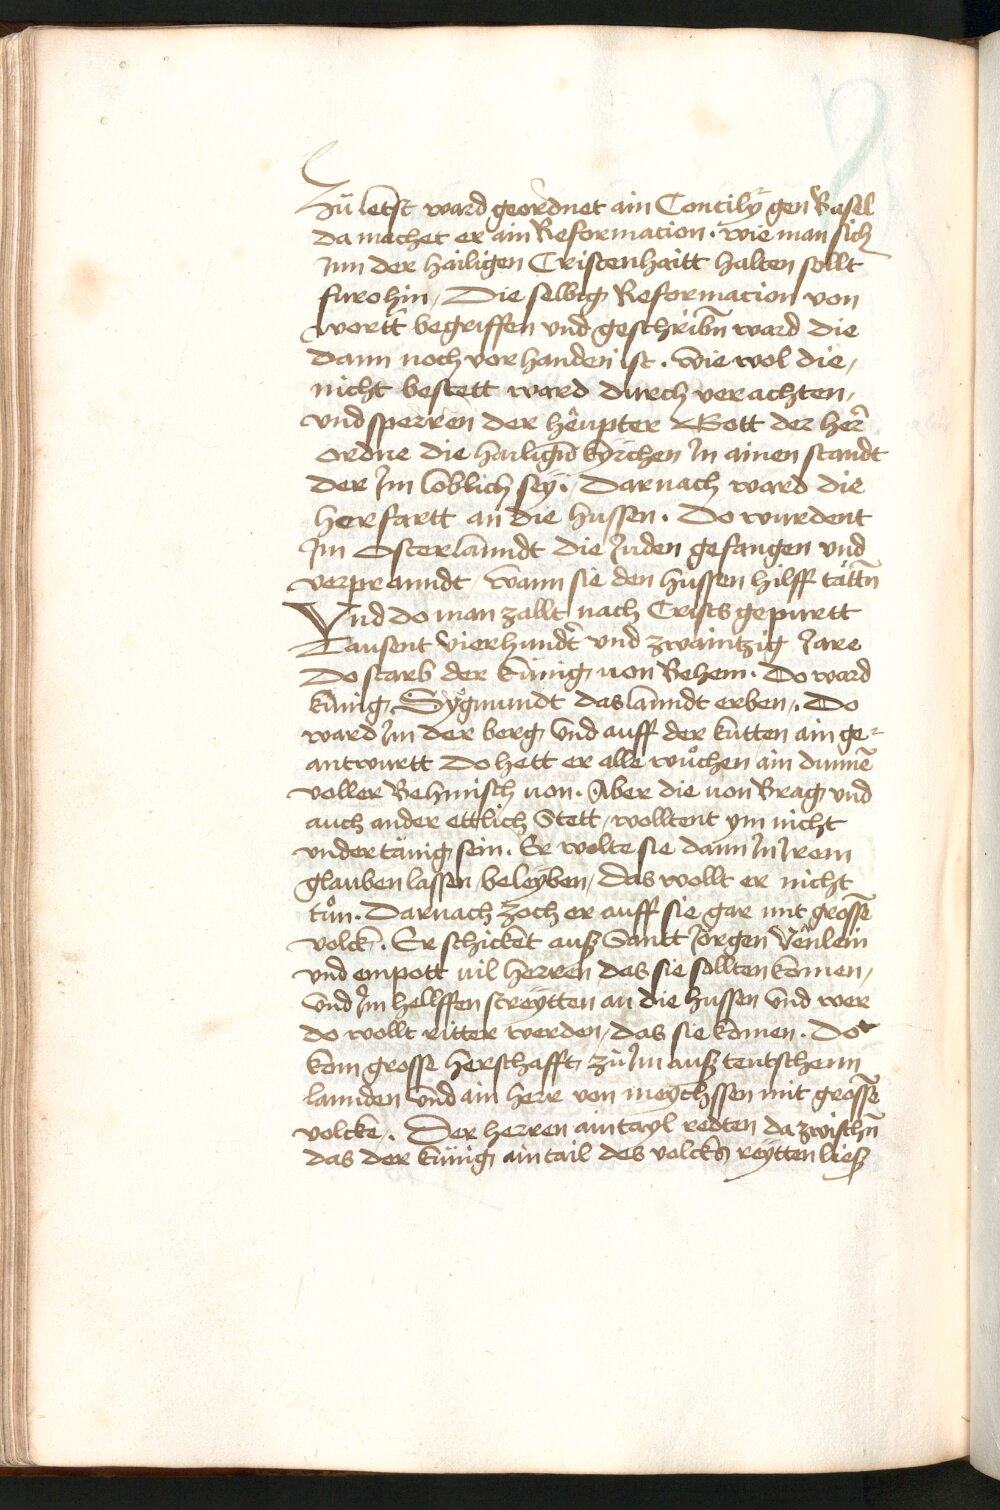 Zů letst ward geordnet ain Concily gen Basel
da machet er ain Reformacion. wie man sich
Inn der hailigen Cristenhaitt halten sollt
furohin, Die selbig Reformacion von
wortt begriffen vnd geschribn̄ ward die
dann noch vorhanden ist. wie wol die,
nicht bestett ward durch verachten,
vnd sperren der heupter Gott der her̄
ordne die hailign̄ kyrchen In ainen standt
der Im loblich sey. Darnach ward die
herfartt an die hussen. Do wurdent
Im Osterlanndt die Juden gefangen vnd
verpranndt, wann sie den hussen hilff tättn̄
Vnd do man zallt nach Crists gepurtt
Tausent vierhundt̄ vnd zwaintzig Jare
Do starb der kunig von Behem. Do ward
kunig Sygmundt das lanndt erben. Do
ward Im der berg vnd auff der kutten ain ge-
antwurtt Do hett er alle wůchen ain
voller Behmisch von. Aber die von Brag vnd
auch ander ettlich Stett, wolltent ym nicht
vndertänig sein. Er wolte sie dann In Irem
glauben lassen beleyben, das wollt er nicht
tůn. Darnach zoch er auff sie gar mit grossē
volck. Er schicket auß Sanct Jörgen Venlein
vnd empott vil herren das sie sollten komen,
vnd Im hellffen streytten an die hussen vnd wer
do wollt ritter werden, das sie komen. Do
kom grosse herschafft zů Im auß teutschenn
lannden vnd ain herr von meychssen mit grossē
volcke. Der herren ain tayl redten da zwischn̄
das der kunig ain tail des volcks reytten ließ